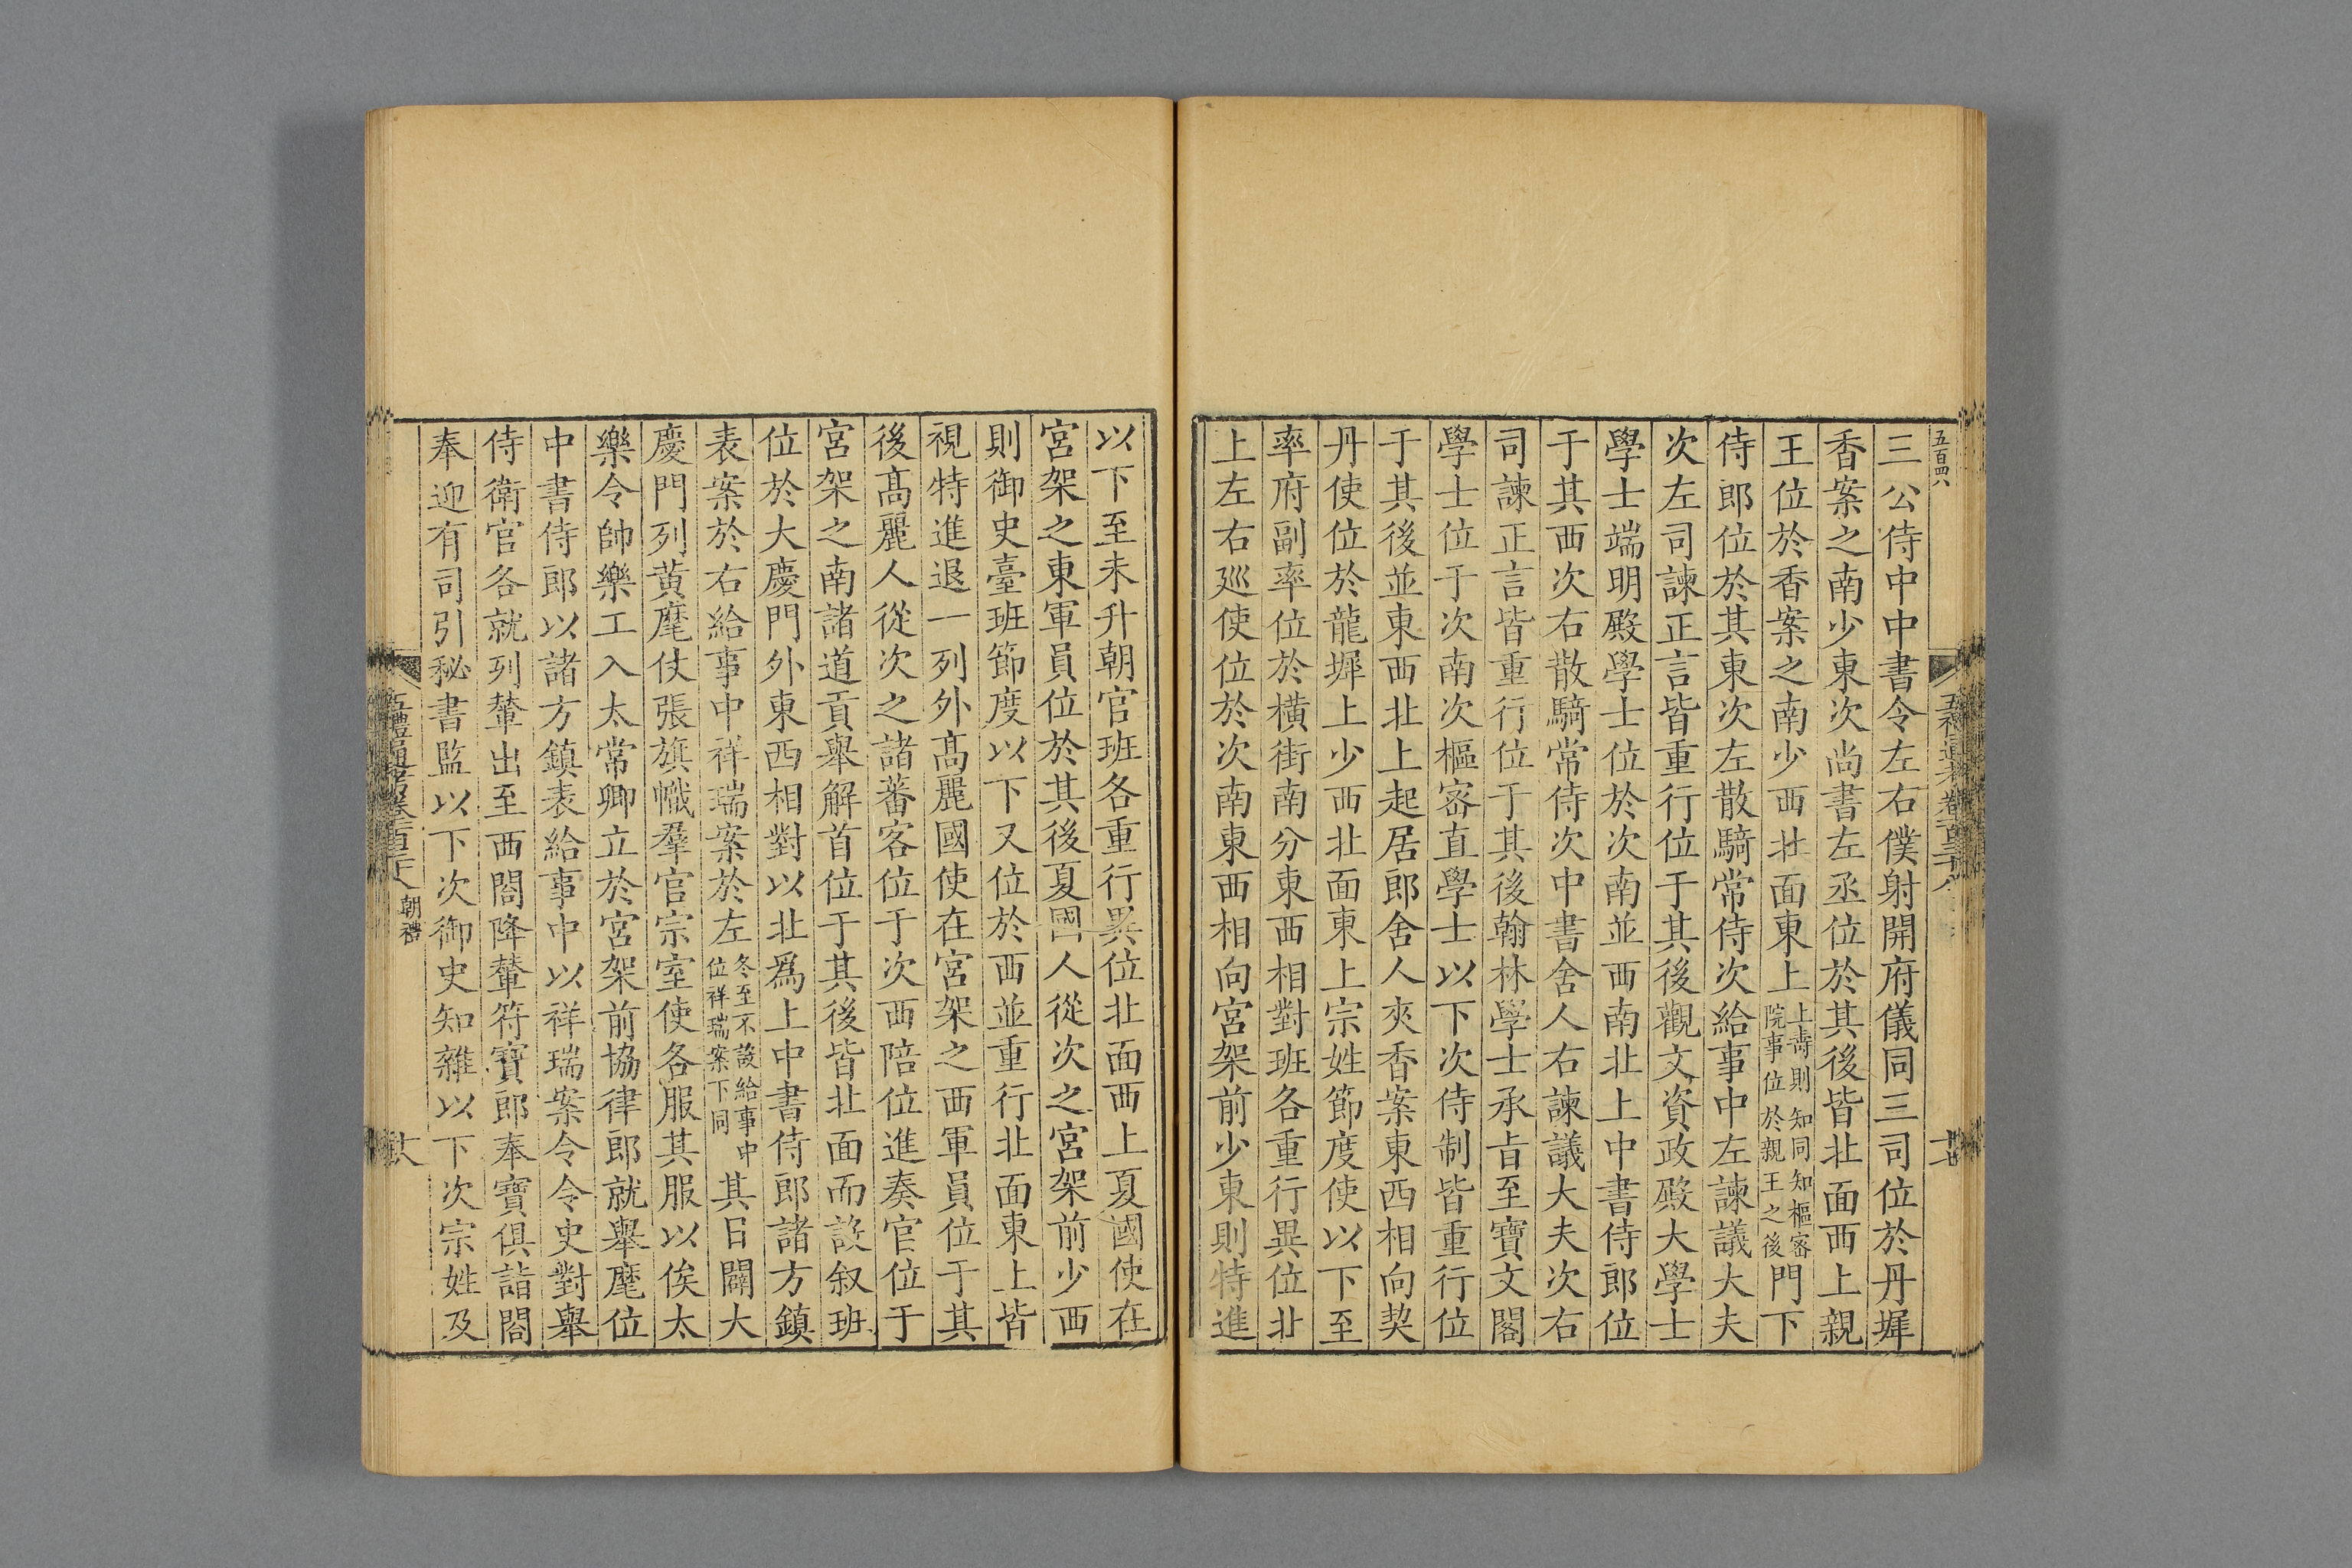 五百四六
三公侍中中書令左右僕射開府儀同三司位於丹墀
香案之南少東次尚書左丞位於其後皆北面西上親
王位於香案之南少西北面東上上壽則知同知樞密院事位於親王之後門下
侍郎位於其東次左散騎常侍次給事中左諫議大夫
次左司諫正言皆重行位于其後觀文資政殿大學士
學士端明殿學士位於次南並西南北上中書侍郎位
于其西次右散騎常侍次中書舍人右諫議大夫次右
司諫正言皆重行位于其後翰林學士承旨至寶文閣
學士位于次南次樞密直學士以下次侍制皆重行位
于其後並東西北上起居郎舍人夾香案東西相向契
丹使位於龍墀上少西北面東上宗姓節度使以下至
率府副率位於橫街南分東西相對班各重行異位北
上左右巡使位於次南東西相向宮架前少東則特進
以下至未升朝官班各重行異位北面西上夏國使在
宮架之東軍員位於其後夏國人從次之宮架前少西
則御史臺班節度以下又位於西並重行北面東上皆
視特進退一列外髙麗國使在宮架之西軍員位于其
後髙麗人從次之諸蕃客位于次西陪位進奏官位于
宮架之南諸道貢舉解首位于其後皆北面而設叙班
位於大慶門外東西相對以北爲上中書侍郎諸方鎮
表案於右給事中祥瑞案於左冬至不設給事中位祥瑞案下同其日闢大
慶門列黃麾仗張旗幟羣官宗室使各服其服以俟太
樂令帥樂工入太常卿立於宮架前協律郎就舉麾位
中書侍郎以諸方鎮表給事中以祥瑞案令令史對舉
侍衛官各就列輦出至西閤降輦符寶郎奉寶俱詣閤
奉迎有司引秘書監以下次御史知雜以下次宗姓及
朝禮